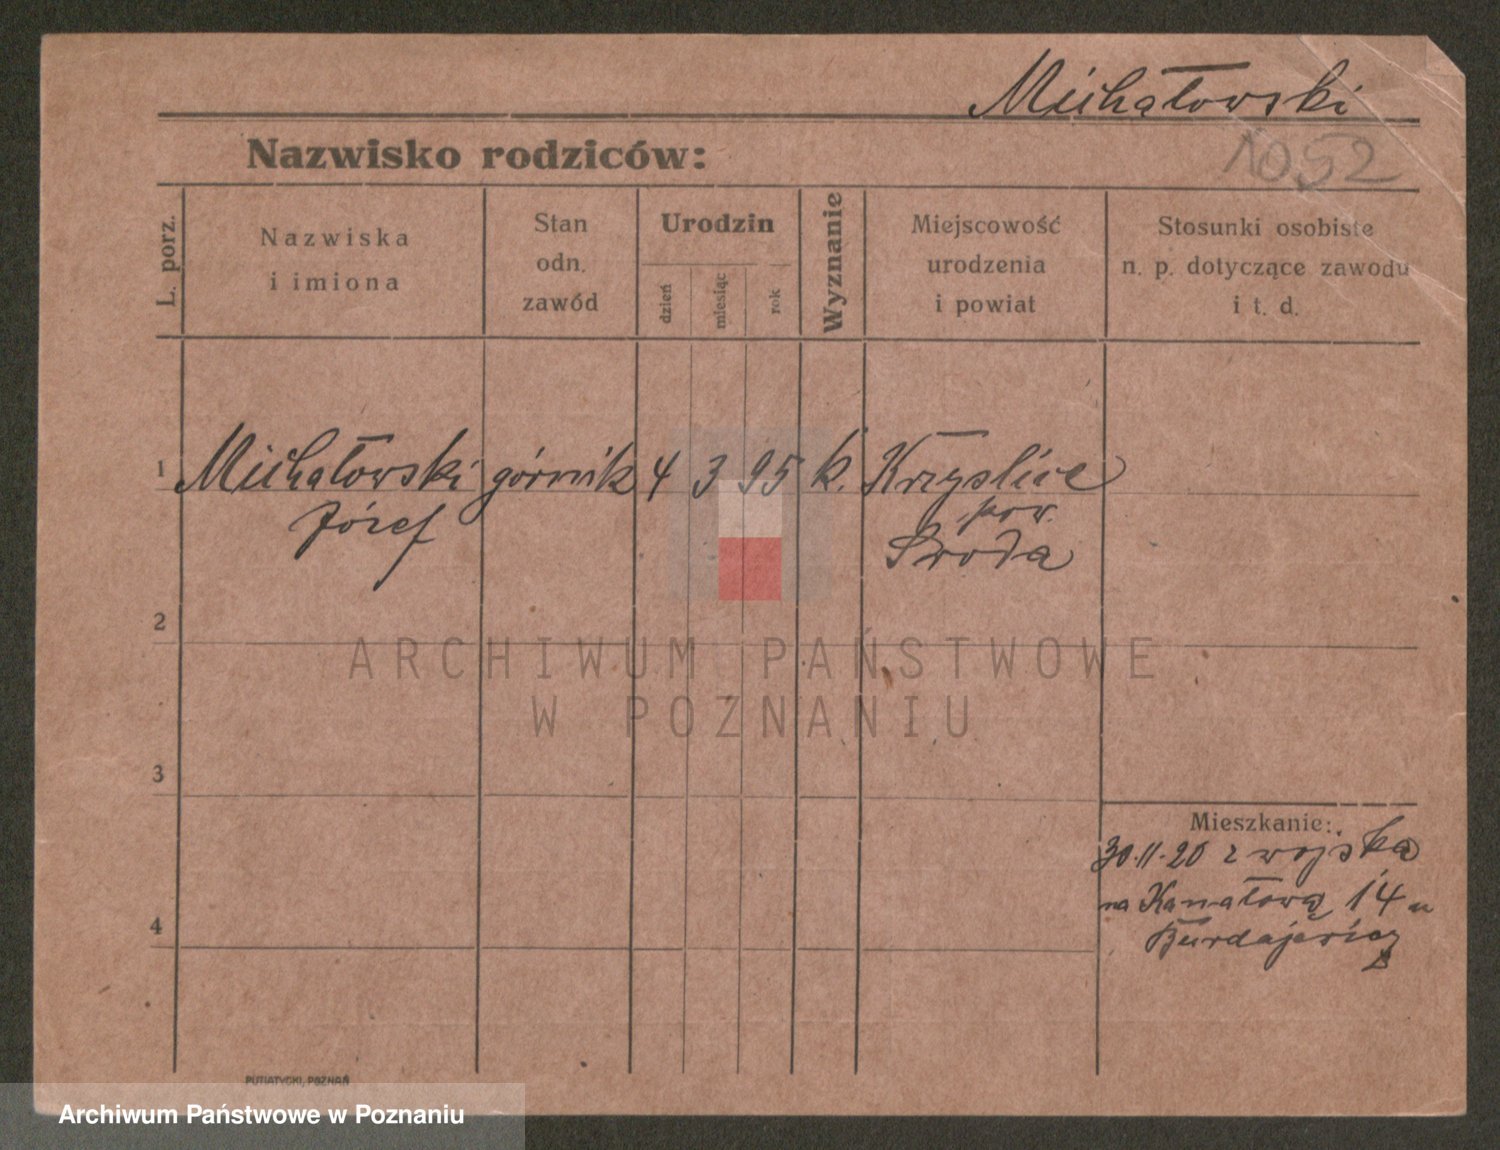 Michałowski
1052
Nazwisko rodziców:
L. porz.
Nazwiska
i imiona
Stan
odn.
zawód
Urodzin
dzień
miesiąc
rok
Wyznanie
Miejscowość
urodzenia
i powiat
Stosunki osobiste
n. p. dotyczące zawodu
i t. d.
1 Michałowski górnik 4 3 95 k. Krzyslice
Józef
pow.
Środa
2
ARCHIWUM PAŃSTWOWE
W POZNANIU
3
Mieszkanie:
30.11.20 z wojska
na Kanałową 14 u
4
PUTIATYCKI, POZNAŃ
Archiwum Państwowe w Poznaniu